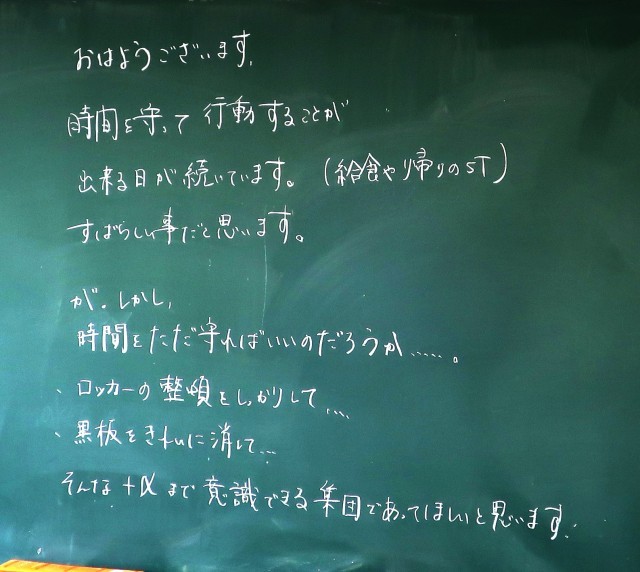 おはようございます。
時間を守って行動することが
出来る日が続いています。(給食や帰りのST)
すばらしい事だと思います。
が、しかし、
時間をただ守ればいいのだろうか……。
、ロッカーの整頓をしっかりして…
、黒板をきれいに消して…
そんな+αまで意識できる集団であってほしいと思います。